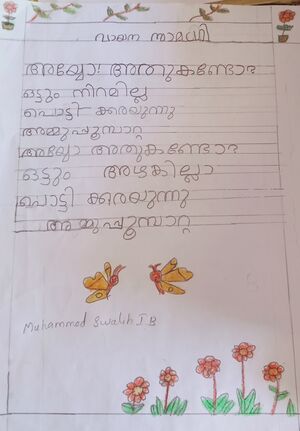 വായന സാമഗ്രി
അയ്യോ! അതുകണ്ടോ
ഒട്ടും നിറമില്ല
പൊട്ടി ക്കരയുന്നു
അമ്മുപ്പൂമ്പാറ്റ
അയ്യോ അതുകണ്ടോ
ഒട്ടും അഴകില്ലാ
പൊട്ടി ക്കരയുന്നു
അമ്മുപ്പൂമ്പാറ്റ
Muhammed Swalih I B